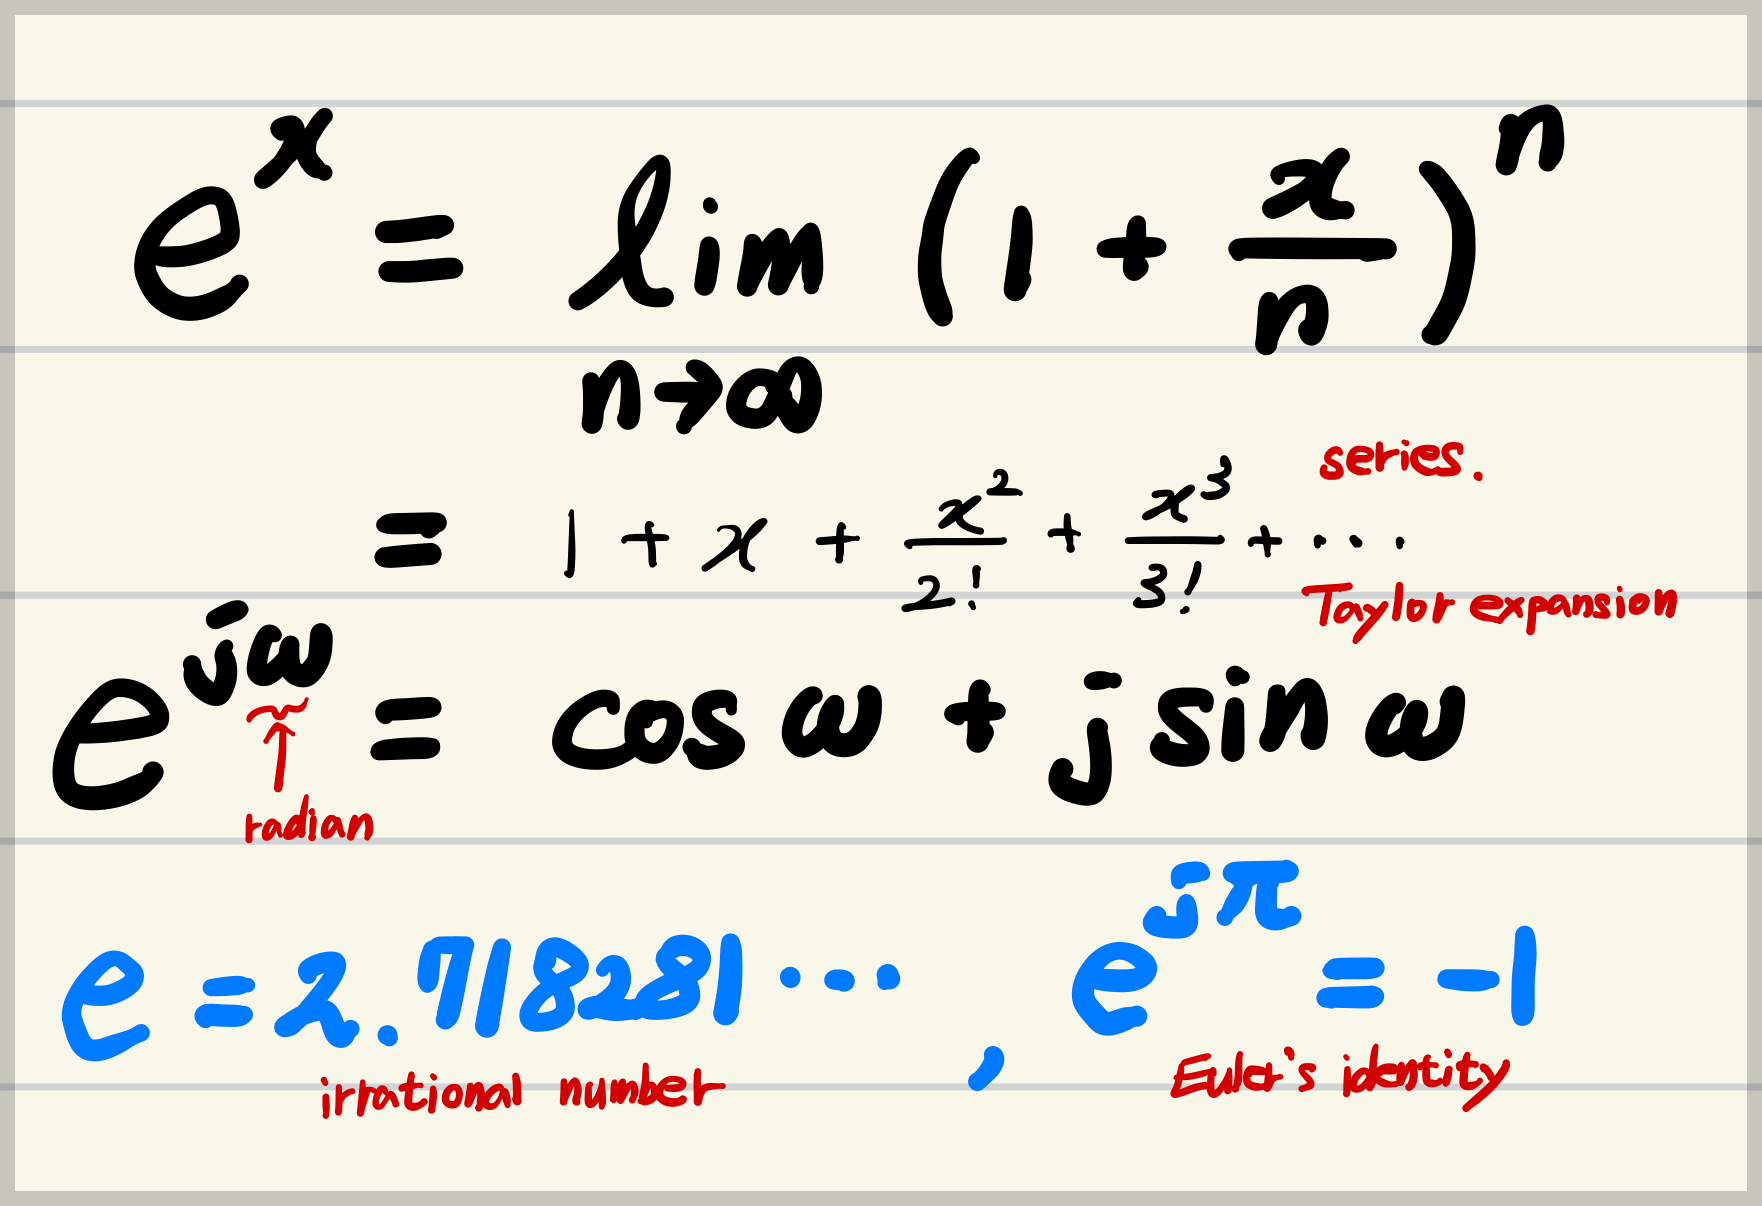 e^x = lim (1 + x/n)^n
n→∞
series.
= 1 + x + x^2/2! + x^3/3! + ···
Taylor expansion
e^jω = cos ω + j sin ω
radian
e = 2.718281··· , e^jπ = -1
irrational number Euler's identity